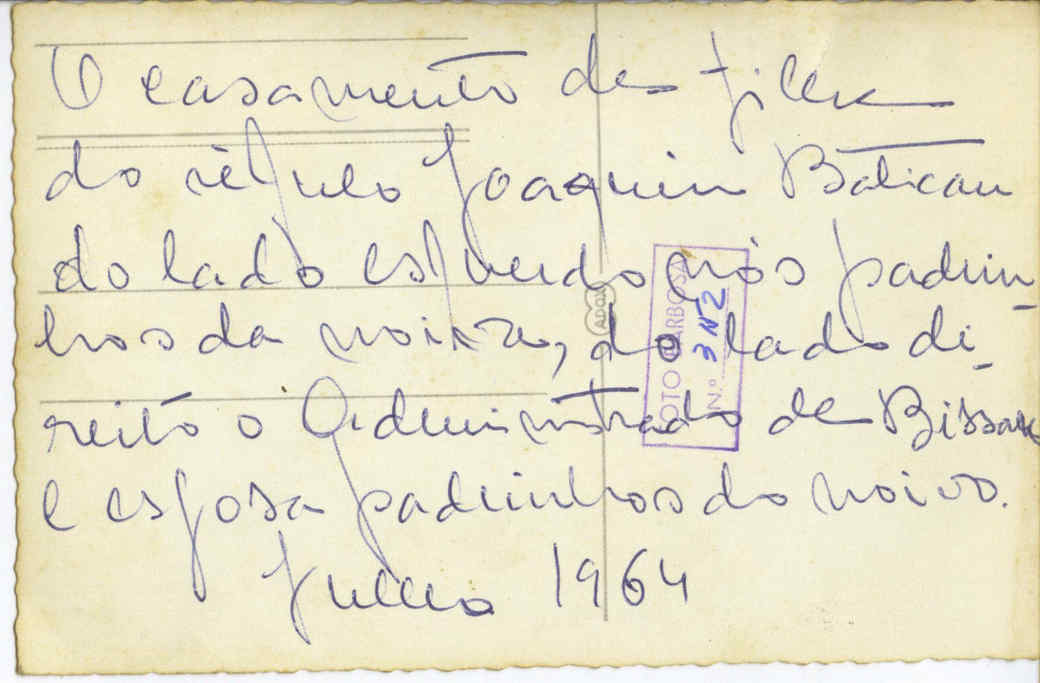 O casamento da filha
do régulo Joaquim Batican
do lado esquerdo nós padrin
hos da noiva, do lado di-
reito o Administrado de Bissau
e esposa padrinhos do noivo.
Julho 1964
FOTO BARBOSA
Nº 3 N2